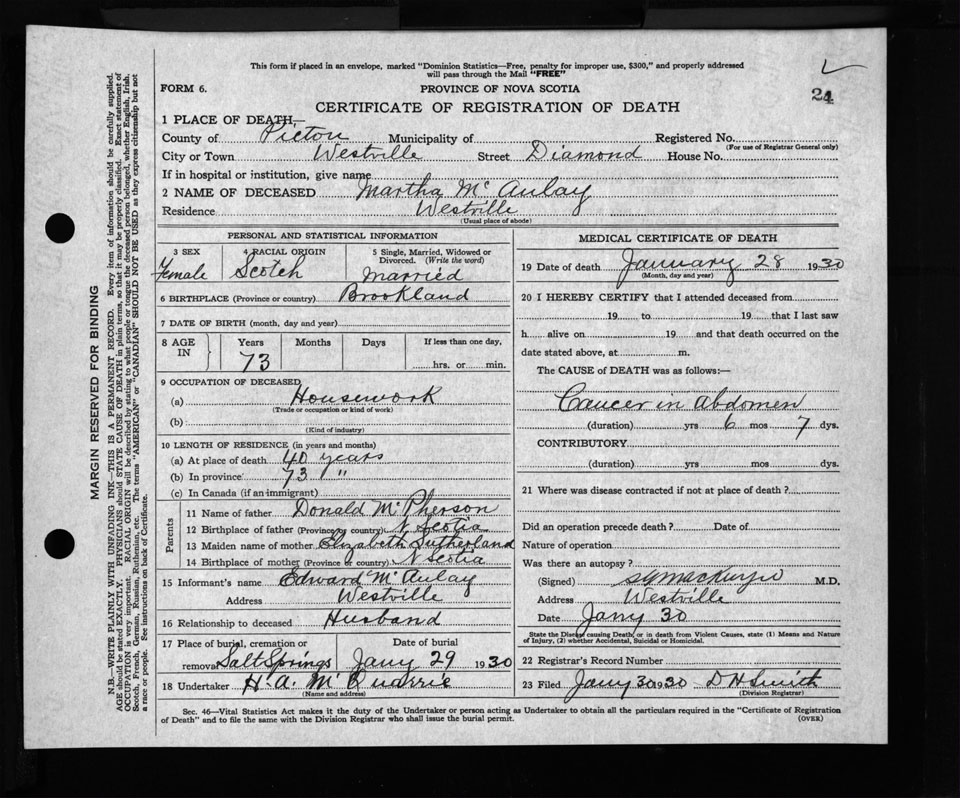 This form if placed in an envelope, marked "Dominion Statistics—Free, penalty for improper use, $300," and properly addressed
will pass through the Mail "FREE"
FORM 6.
PROVINCE OF NOVA SCOTIA
24
CERTIFICATE OF REGISTRATION OF DEATH
1 PLACE OF DEATH—
County of Pictou Municipality of Registered No.
(For use of Registrar General only)
City or Town Westville Street Diamond House No.
If in hospital or institution, give name
2 NAME OF DECEASED Martha McAulay
Residence Westville
(Usual place of abode)
PERSONAL AND STATISTICAL INFORMATION
3 SEX 4 RACIAL ORIGIN 5 Single, Married, Widowed or Divorced. (Write the word)
Female Scotch Married
6 BIRTHPLACE (Province or country) Brookland
7 DATE OF BIRTH (month, day and year)
8 AGE IN Years Months Days If less than one day,
73 hrs. or min.
9 OCCUPATION OF DECEASED
(a) Housework
(Trade or occupation or kind of work)
(b)
(Kind of industry)
10 LENGTH OF RESIDENCE (in years and months)
(a) At place of death 40 years
(b) In province 73 "
(c) In Canada (if an immigrant)
Parents
11 Name of father Donald McPherson
12 Birthplace of father (Province or country) N Scotia
13 Maiden name of mother Elizabeth Sutherland
14 Birthplace of mother (Province or country) N Scotia
15 Informant's name Edward McAulay
Address Westville
16 Relationship to deceased Husband
17 Place of burial, cremation or Date of burial
removal Salt Springs Jany 29 1930
18 Undertaker H. A. McQuarrie
(Name and address)
MEDICAL CERTIFICATE OF DEATH
19 Date of death January 28 1930
(Month, day and year)
20 I HEREBY CERTIFY that I attended deceased from
19 to 19 that I last saw
h alive on 19 and that death occurred on the
date stated above, at m.
The CAUSE of DEATH was as follows:—
Cancer in Abdomen
(duration) yrs 6 mos 7 dys.
CONTRIBUTORY
(duration) yrs mos dys.
21 Where was disease contracted if not at place of death?
Did an operation precede death? Date of
Nature of operation
Was there an autopsy?
(Signed) M.D.
Address Westville
Date Jany 30
State the Disease causing Death, or in death from Violent Causes, state (1) Means and Nature
of Injury, (2) whether Accidental, Suicidal or Homicidal.
22 Registrar's Record Number
23 Filed Jany 30 1930 D H Smith
(Division Registrar)
Sec. 46—Vital Statistics Act makes it the duty of the Undertaker or person acting as Undertaker to obtain all the particulars required in the "Certificate of Registration
of Death" and to file the same with the Division Registrar who shall issue the burial permit.
(OVER)
MARGIN RESERVED FOR BINDING
N.B.—WRITE PLAINLY WITH UNFADING INK—THIS IS A PERMANENT RECORD. Every item of information should be carefully supplied.
AGE should be stated EXACTLY. PHYSICIANS should STATE CAUSE OF DEATH in plain terms, so that it may be properly classified. Exact statement of
OCCUPATION is very important. RACIAL ORIGIN will be described by stating to what people or tongue the deceased person belonged, whether English, Irish,
Scotch, French, German, Russian, Ruthenian, etc. The terms "AMERICAN" or "CANADIAN" SHOULD NOT BE USED as they express citizenship but not
a race or people. See instructions on back of Certificate.